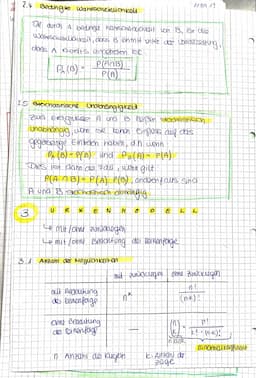 2.4 Bedingte Wahrscheinlichkeit
Die durch A bedingte Wahrscheinlichkeit von B, ist die
Wahrscheinlichkeit, dass B eintritt unter der Voraussetzung,
dass A bereits eingetreten ist
P_A(B) = P(A∩B) / P(A)
2.5 Stochastische Unabhängigkeit
Zwei Ereignisse A und B heißen stochastisch
unabhängig, wenn sie keinen Einfluss auf das
Eintreten haben, d.h. wenn
P_A(B) = P(B) und P_B(A) = P(A)
Dies ist dann der Fall, wenn gilt
P(A∩B) = P(A) · P(B), andernfalls sind
A und B stochastisch abhängig.
3 URNENMODELL
↳ mit/ohne Zurücklegen
↳ mit/ohne Beachtung der Reihenfolge
3.1 Anzahl der Möglichkeiten
mit Zurücklegen ohne Zurücklegen
mit Beachtung der Reihenfolge n^k n! / (n-k)!
ohne Beachtung der Reihenfolge — (n k) = n! / k!·(n-k)!
n: Anzahl der Kugeln k: Anzahl der
Züge